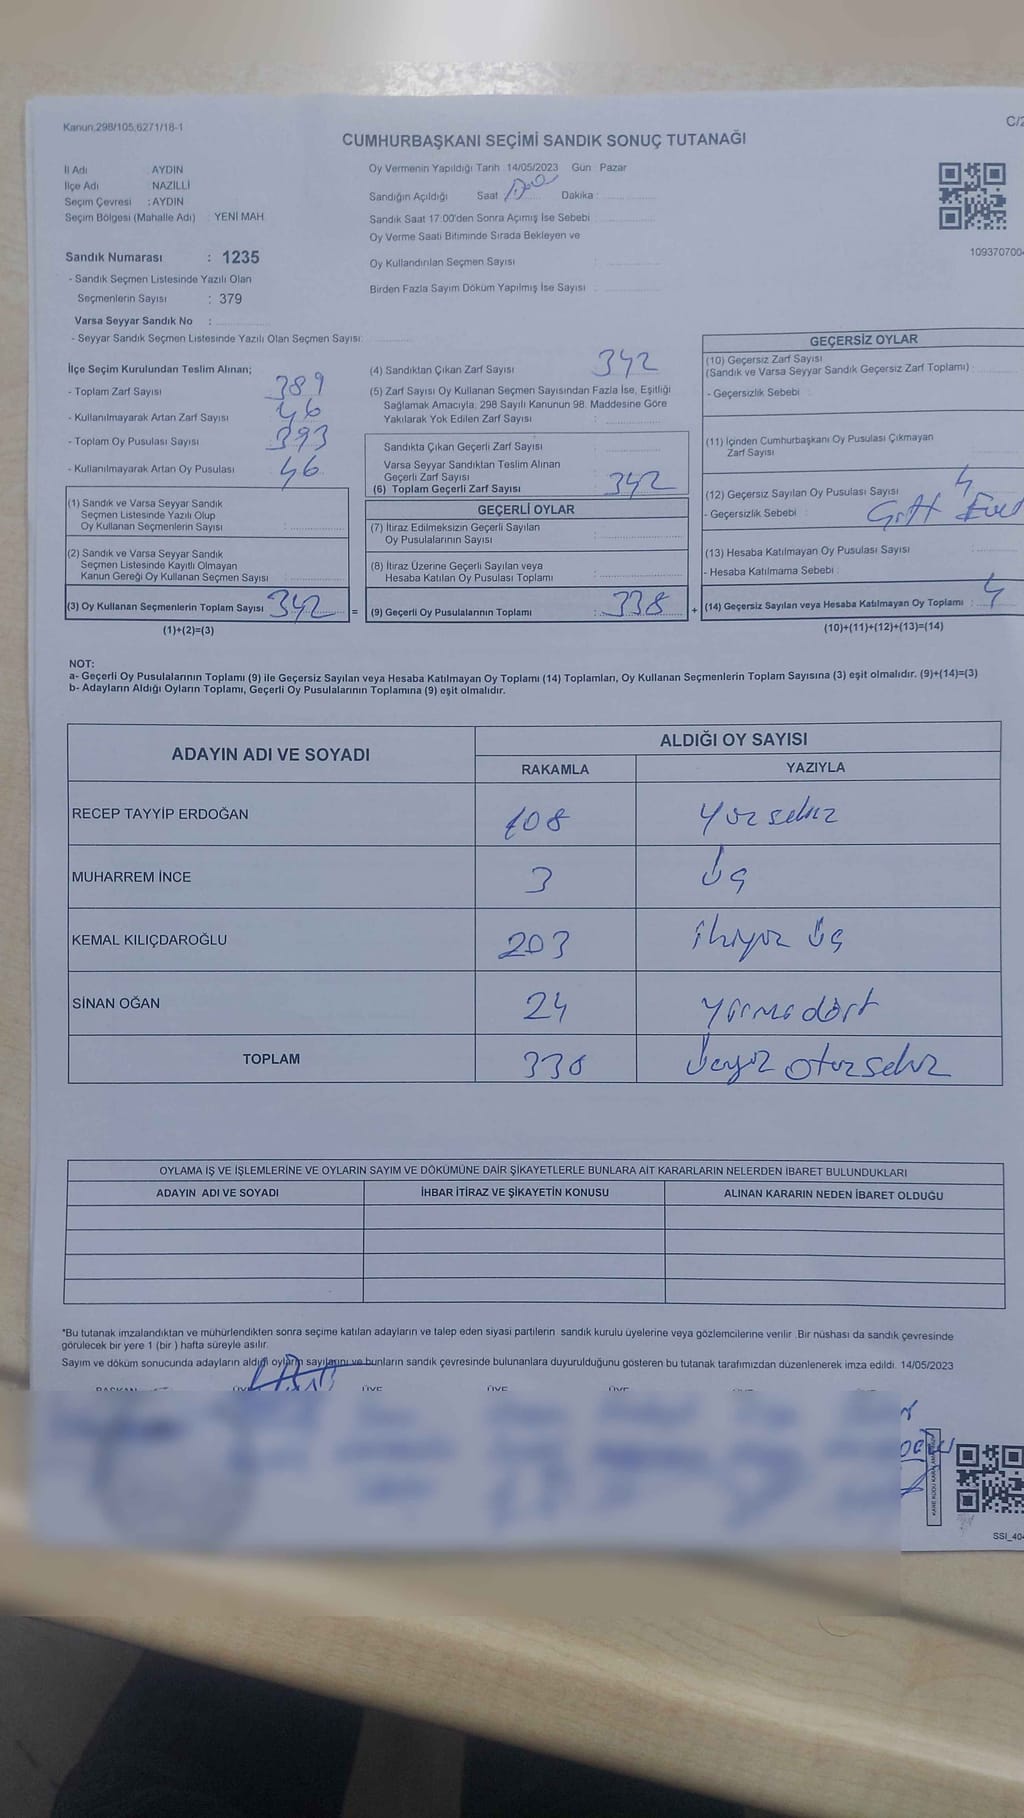 Kanun;298/105,6271/18-1
C/2
CUMHURBAŞKANI SEÇİMİ SANDIK SONUÇ TUTANAĞI
İl Adı AYDIN
İlçe Adı NAZİLLİ
Seçim Çevresi : AYDIN
Seçim Bölgesi (Mahalle Adı) YENİ MAH.
Oy Vermenin Yapıldığı Tarih 14/05/2023 Gün Pazar
Sandığın Açıldığı Saat Dakika :
Sandık Saat 17:00'den Sonra Açımış İse Sebebi
Oy Verme Saati Bitiminde Sırada Bekleyen ve
Oy Kullandırılan Seçmen Sayısı :
Birden Fazla Sayım Döküm Yapılmış İse Sayısı :
109370700
Sandık Numarası : 1235
- Sandık Seçmen Listesinde Yazılı Olan
Seçmenlerin Sayısı : 379
Varsa Seyyar Sandık No :
- Seyyar Sandık Seçmen Listesinde Yazılı Olan Seçmen Sayısı
İlçe Seçim Kurulundan Teslim Alınan;
- Toplam Zarf Sayısı 389
- Kullanılmayarak Artan Zarf Sayısı 46
- Toplam Oy Pusulası Sayısı 393
- Kullanılmayarak Artan Oy Pusulası 46
(1) Sandık ve Varsa Seyyar Sandık
Seçmen Listesinde Yazılı Olup
Oy Kullanan Seçmenlerin Sayısı :
(2) Sandık ve Varsa Seyyar Sandık
Seçmen Listesinde Kayıtlı Olmayan
Kanun Gereği Oy Kullanan Seçmen Sayısı :
(3) Oy Kullanan Seçmenlerin Toplam Sayısı 342 =
(1)+(2)=(3)
(4) Sandıktan Çıkan Zarf Sayısı 342
(5) Zarf Sayısı Oy Kullanan Seçmen Sayısından Fazla İse, Eşitliği
Sağlamak Amacıyla, 298 Sayılı Kanunun 98. Maddesine Göre
Yakılarak Yok Edilen Zarf Sayısı :
Sandıkta Çıkan Geçerli Zarf Sayısı
Varsa Seyyar Sandıktan Teslim Alınan
Geçerli Zarf Sayısı
(6) Toplam Geçerli Zarf Sayısı 342
GEÇERLİ OYLAR
(7) İtiraz Edilmeksizin Geçerli Sayılan
Oy Pusulalarının Sayısı :
(8) İtiraz Üzerine Geçerli Sayılan veya
Hesaba Katılan Oy Pusulası Toplamı :
(9) Geçerli Oy Pusulalarının Toplamı : 338 +
GEÇERSİZ OYLAR
(10) Geçersiz Zarf Sayısı
(Sandık ve Varsa Seyyar Sandık Geçersiz Zarf Toplamı) :
- Geçersizlik Sebebi :
(11) İçinden Cumhurbaşkanı Oy Pusulası Çıkmayan
Zarf Sayısı
(12) Geçersiz Sayılan Oy Pusulası Sayısı 4
- Geçersizlik Sebebi :
(13) Hesaba Katılmayan Oy Pusulası Sayısı
- Hesaba Katılmama Sebebi :
(14) Geçersiz Sayılan veya Hesaba Katılmayan Oy Toplamı : 4
(10)+(11)+(12)+(13)=(14)
NOT:
a- Geçerli Oy Pusulalarının Toplamı (9) ile Geçersiz Sayılan veya Hesaba Katılmayan Oy Toplamı (14) Toplamları, Oy Kullanan Seçmenlerin Toplam Sayısına (3) eşit olmalıdır. (9)+(14)=(3)
b- Adayların Aldığı Oyların Toplamı, Geçerli Oy Pusulalarının Toplamına (9) eşit olmalıdır.
ADAYIN ADI VE SOYADI ALDIĞI OY SAYISI
RAKAMLA YAZIYLA
RECEP TAYYİP ERDOĞAN 108 Yüz sekiz
MUHARREM İNCE 3 Üç
KEMAL KILIÇDAROĞLU 203 ikiyüz Üç
SİNAN OĞAN 24 Yirmi dört
TOPLAM 338 Üçyüz otuz sekiz
OYLAMA İŞ VE İŞLEMLERİNE VE OYLARIN SAYIM VE DÖKÜMÜNE DAİR ŞİKAYETLERLE BUNLARA AİT KARARLARIN NELERDEN İBARET BULUNDUKLARI
ADAYIN ADI VE SOYADI İHBAR İTİRAZ VE ŞİKAYETİN KONUSU ALINAN KARARIN NEDEN İBARET OLDUĞU
*Bu tutanak imzalandıktan ve mühürlendikten sonra seçime katılan adayların ve talep eden siyasi partilerin sandık kurulu üyelerine veya gözlemcilerine verilir. Bir nüshası da sandık çevresinde
görülecek bir yere 1 (bir ) hafta süreyle asılır.
Sayım ve döküm sonucunda adayların aldığı oyların sayılarını ve bunların sandık çevresinde bulunanlara duyurulduğunu gösteren bu tutanak tarafımızdan düzenlenerek imza edildi. 14/05/2023
BAŞKAN ÜYE ÜYE ÜYE ÜYE ÜYE ÜYE
SSI_40